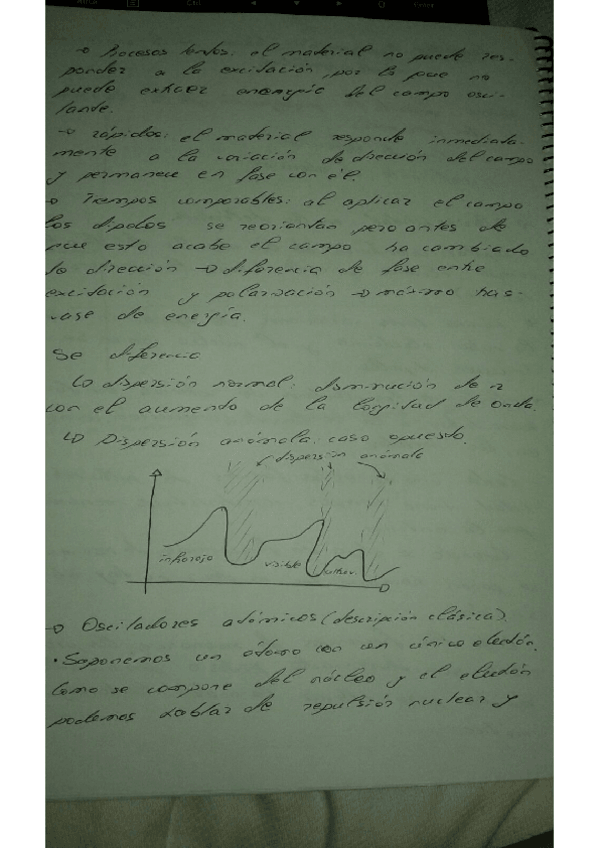 → Procesos lentos: el material no puede res-
ponder a la excitación, por lo que no
puede extraer energía del campo osci-
lante.
→ rápidos: el material responde inmediata-
mente a la variación de dirección del campo
y permanece en fase con él.
→ Tiempos comparables: al aplicar el campo
los dipolos se reorientan pero antes de
que esto acabe el campo ha cambiado
la dirección → diferencia de fase entre
excitación y polarización → máximo tras-
vase de energía.
Se diferencia
↳ dispersión normal: disminución de n
con el aumento de la longitud de onda.
↳ Dispersión anómala: caso opuesto.
dispersión anómala
infrarojo
visible
ultrav.
→ Osciladores atómicos (descripción clásica).
• Suponemos un átomo con un único electrón.
Como se compone del núcleo y el electrón
podemos hablar de repulsión nuclear y